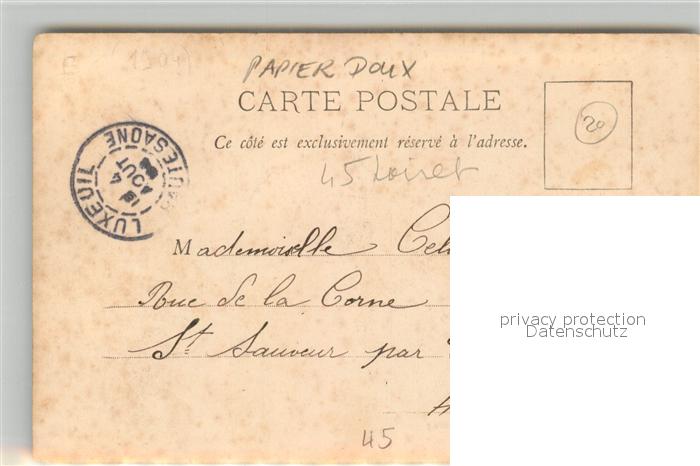 E (1904)
PAPIER DOUX
CARTE POSTALE
20
Ce côté est exclusivement réservé à l'adresse.
45 Loiret
LUXEUIL
HAUTE SAÔNE
4
AOUT
Mademoiselle
Rue de la Corne
St. Sauveur par
45
privacy protection
Datenschutz